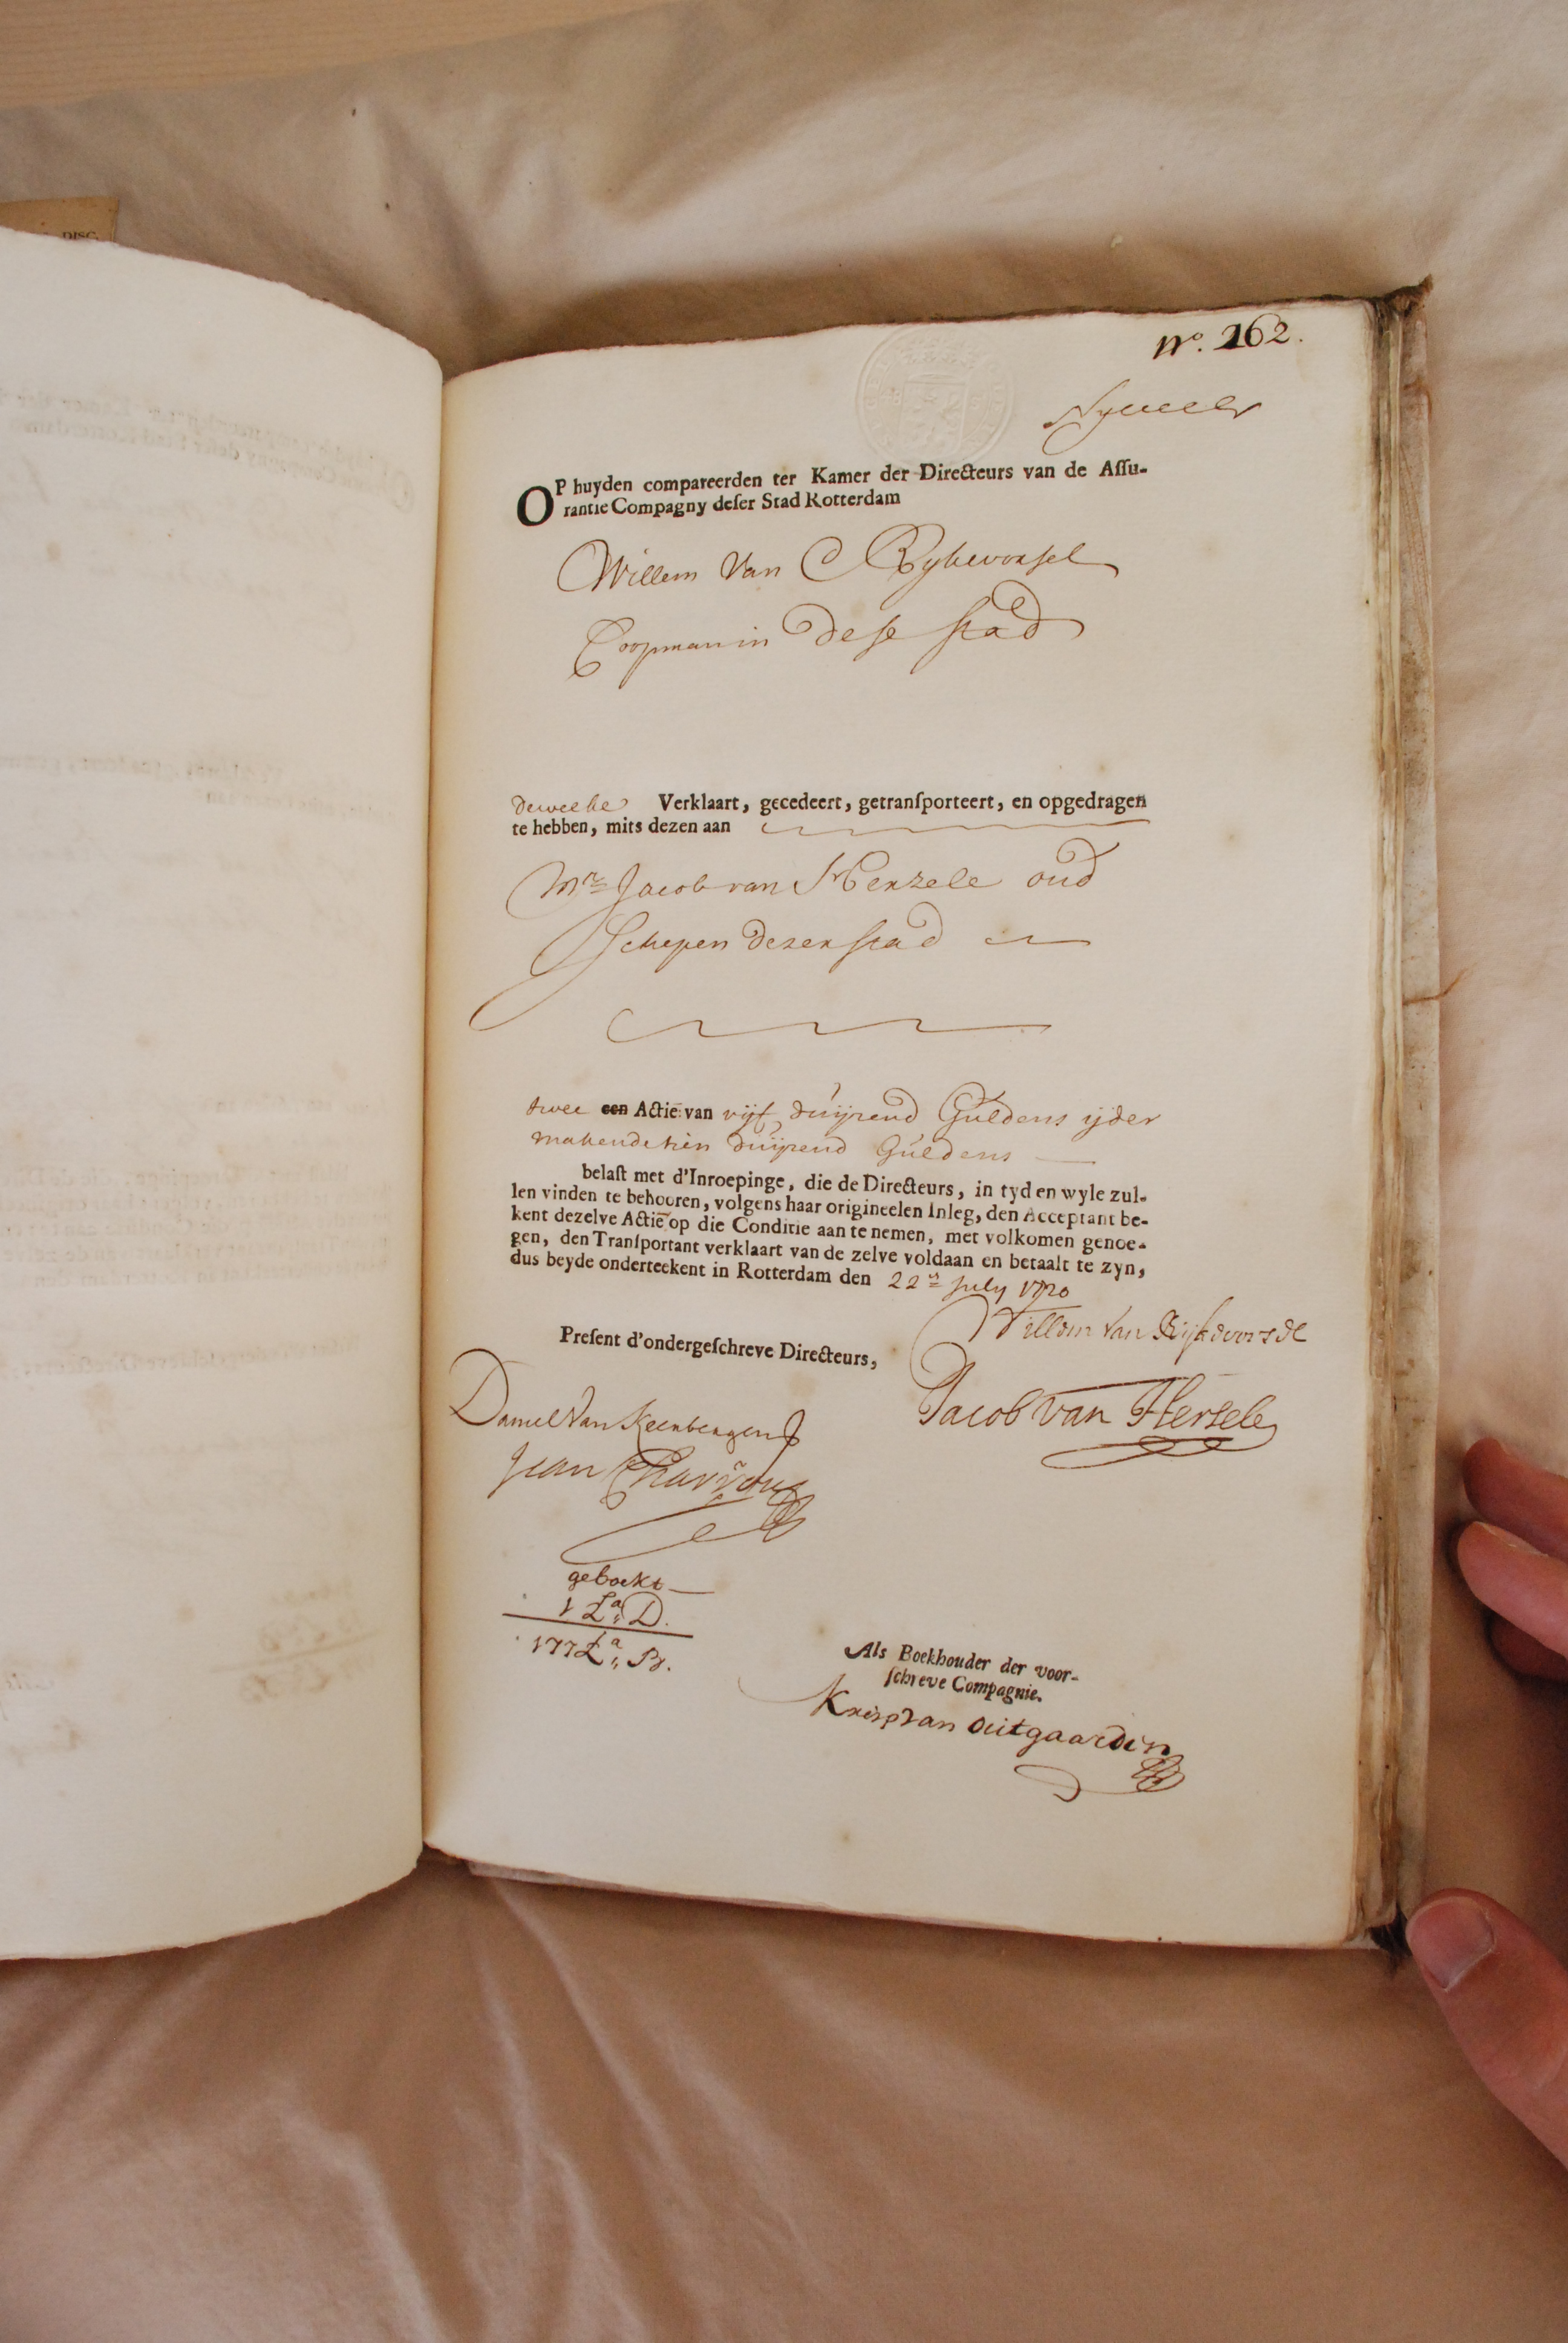 DISC
No. 262.
OP huyden compareerden ter Kamer der Directeurs van de Assu-
rantie Compagny deser Stad Rotterdam
Willem Van Rykevorssel
Coopman in dese stad
dewelke Verklaart, gecedeert, getransporteert, en opgedragen
te hebben, mits dezen aan
Mr. Jacob van Herzele oud
Schepen dezer stad
twee een Actie van vijf duijzend Guldens ijder
makende tien duijzend Guldens
belast met d'Inroepinge, die de Directeurs, in tyd en wyle zul-
len vinden te behooren, volgens haar origineelen Inleg, den Acceptant be-
kent dezelve Actie op die Conditie aan te nemen, met volkomen genoe-
gen, den Transportant verklaart van de zelve voldaan en betaalt te zyn,
dus beyde onderteekent in Rotterdam den 22en July 1720
Willem Van Rijkevorssel
Present d'ondergeschreve Directeurs,
Jacob van Herzele
Daniel Van Keerbergen
Jean
geboekt
1 La D.
177 La B.
Als Boekhouder der voor-
schreve Compagnie.
Krisp van Outgaarden